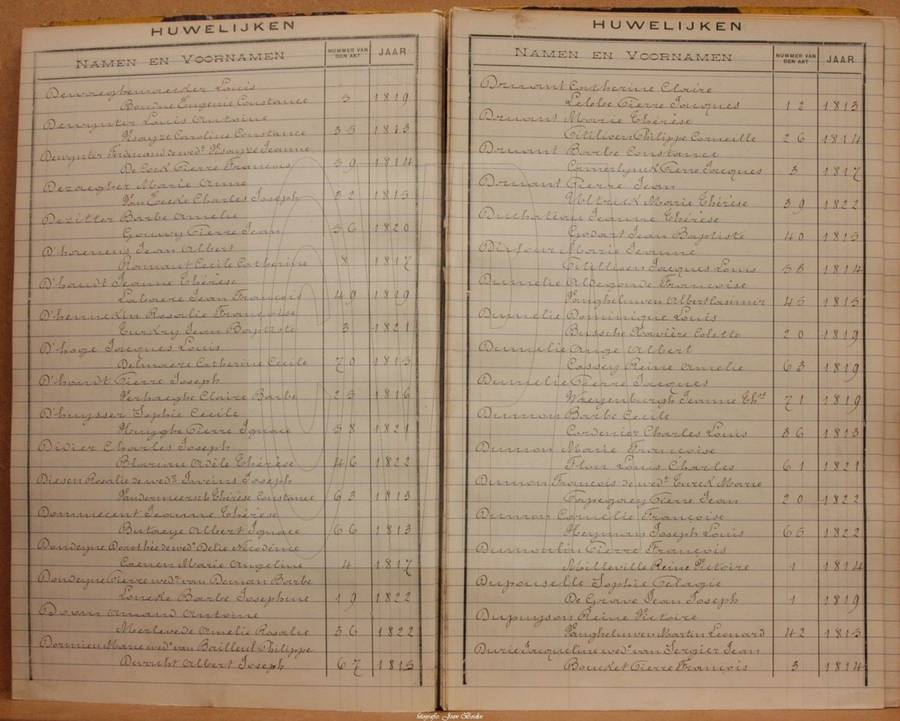 HUWELIJKEN
NAMEN EN VOORNAMEN NUMMER VAN DEN AKT JAAR
Dewaeghemaecker Louis
Eugenie Constance 3 1819
Dewynter Louis Antoine
Caroline Constance 35 1813
Dewynter Ferdinand de wedr Jeanne
De Cock Pierre François 59 1814
Dezaegher Marie Anne
Van Eecke Charles Joseph 32 1815
Dezitter Barbe Amelie
Gouwy Pierre Jean 56 1820
D'horenens Jean Albert
Romant Cecile Catherine 8 1817
D'haudt Jeanne Thérèse
Labaere Jean François 49 1819
D'hennekin Rosalie Françoise
Turkry Jean Baptiste 3 1821
D'hoge Jacques Louis
Delmaere Catherine Cecile 70 1815
D'hondt Pierre Joseph
Verhaeghe Claire Barbe 25 1816
D'huysser Sophie Cecile
Huyghe Pierre Ignace 58 1821
Didier Charles Joseph
Blarieu Adèle Thérèse 46 1822
Diesen Rosalie de wedr Inveins Joseph
Vandermeersch Thérèse Constance 63 1813
Dommecent Jeanne Thérèse
Butaeye Albert Ignace 66 1813
Dondeyne Dorothée de wedr Delie Nicodème
Coenen Marie Angeline 4 1817
Dondeyne Pierre wedr van Deman Barbe
Loncke Barbe Josephine 19 1822
Doom Amand Antoine
Merlevede Amelie Rosalie 36 1822
Dormieu Marie wede van Bailleul Philippe
Albert Joseph 67 1815
HUWELIJKEN
NAMEN EN VOORNAMEN NUMMER VAN DEN AKT JAAR
Druant Catherine Claire
Pierre Jacques 12 1813
Druant Marie Thérèse
Philippe Corneille 26 1814
Druant Barbe Constance
Camerlynck Pierre Jacques 3 1817
Druant Pierre Jean
Marie Thérèse 39 1822
Duchateau Jeanne Thérèse
Godart Jean Baptiste 40 1815
Dufour Marie Jeanne
Jacques Louis 58 1814
Dumelie Aldegonde Françoise
Vangheluwen Albert Casimir 45 1815
Dumelie Dominique Louis
Bussche Xavière Colette 20 1819
Dumelie Ange Albert
Cossey Reine Amelie 63 1819
Dumelie Pierre Jacques
Waeyenburgh Jeanne Thse 71 1819
Dumon Barbe Cecile
Cordenier Charles Louis 36 1813
Dumon Marie Françoise
Flon Louis Charles 61 1821
Dumon François de wedr Turck Marie
Pierre Jean 20 1822
Dumon Cornelie Françoise
Heyman Joseph Louis 65 1822
Dumoulin Pierre François
Milleville Reine Victoire 1 1814
Dupouselle Sophie Pelagie
De Grave Jean Joseph 1 1819
Dupuyson Reine Victoire
Vangheluwen Martin Leonard 42 1815
Durie Jacqueline wede van Sergier Jean
Boucket Pierre François 3 1814
fotografie: Joan